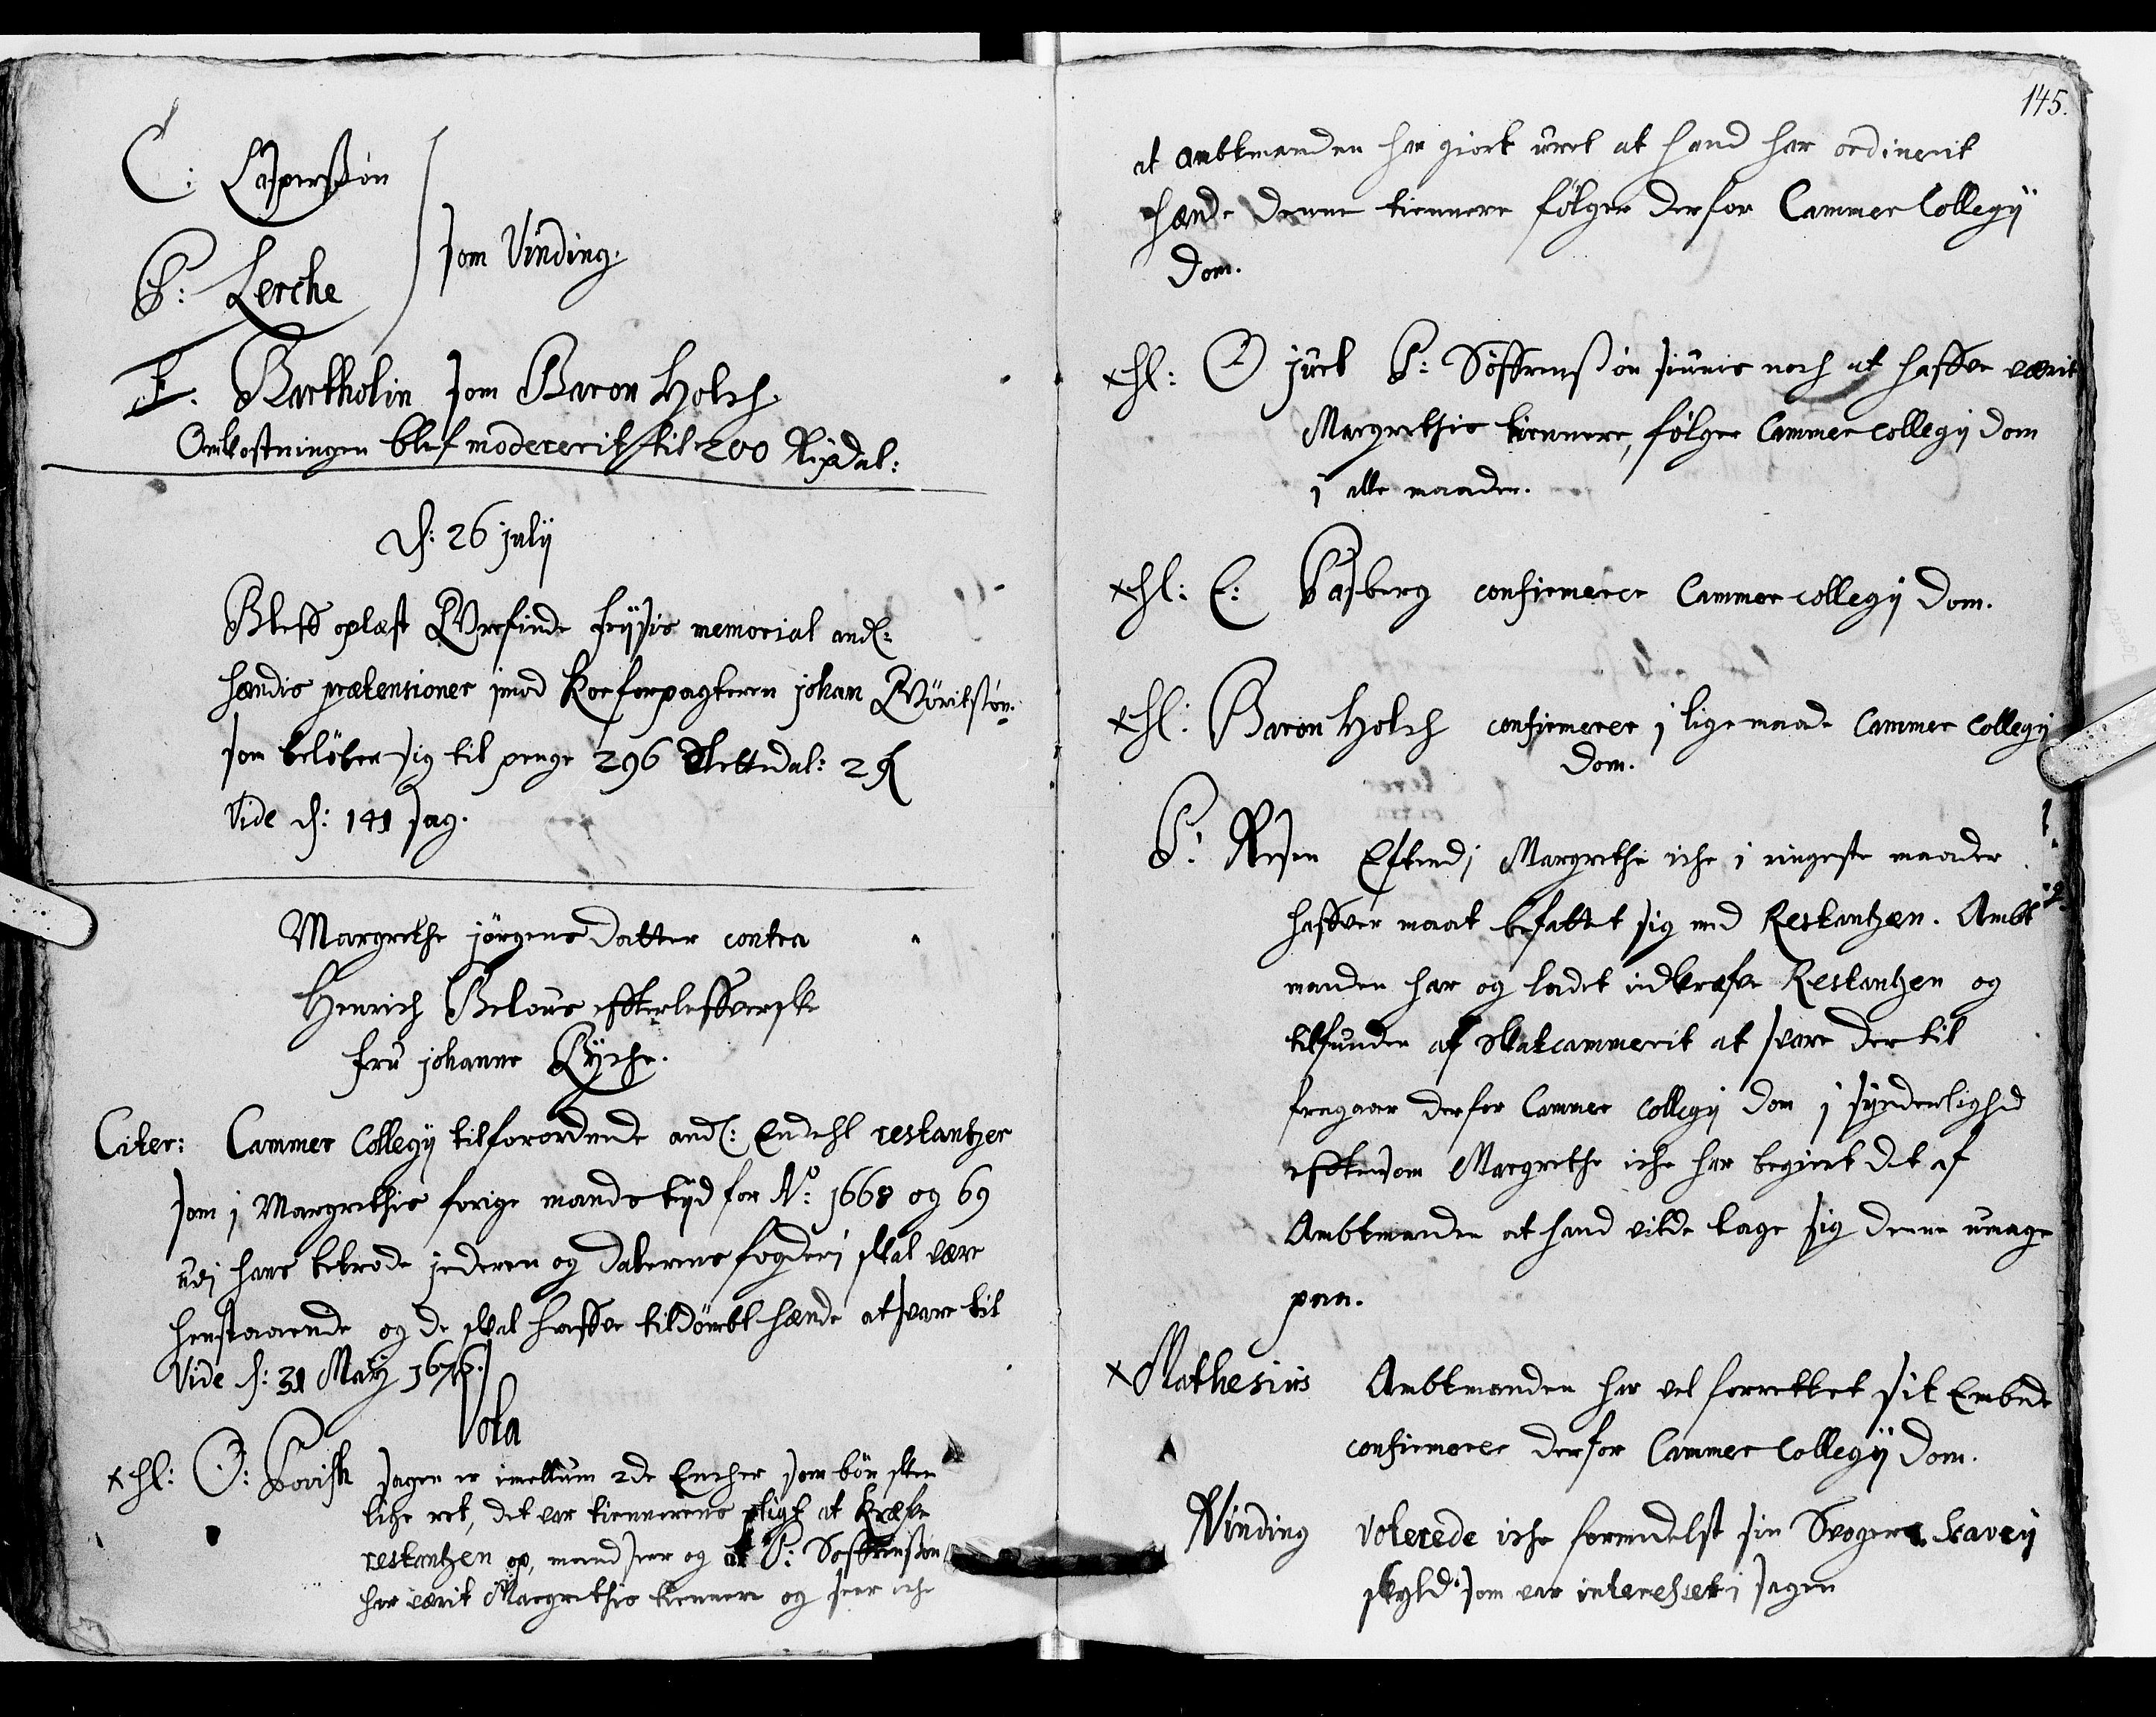 C: Casperssøn
som Vinding.
P: Lerche
F. Bartholin som Baron Holch
Omkostningen blef modererit til 200 Rixdal:
d: 26 julÿ
Bleff oplæst Wrfinde friisis memorial andl:
hendis prætensioner imod Kornforpagteren johan
som beløber sig til penge 296 Slettedal: 2
Vide d: 141 sag.
Margrethe jørgens datter contra
Henrich Belous effterlefferske
fru johanne Rÿtche.
Citer: Cammer Collegÿ tilforordnede andl: Endehl restantzer
som i Margrethis forige mands tÿd for No: 1668 og 69
udj hans betrode jederen og Dalerens fogderj skal være
henstaaende og de skal haffve tildømbt hende at svare til
Vide d: 31 Maij 1676.
Vota
+ hl: O: sagen er imellum 2de Encher som bør skee
lige ret, det var tiennerens pligt at kræfve
restantzen op, mand seer og at P: Søffrenssøn
har værit Margrethis tiennere og seer iche
145.
at ambtmanden har giort uret at hand har ordinerit
hende denne tiennere følger derfor Cammer Collegÿ
Dom.
+ hl: O juel P: Søffrenssøn siunis noch at haffve værit
Margrethis tiennere, følger Cammer collegÿ dom
j alle maader.
+ hl: E: Pasberg confirmerer Cammer collegÿ Dom.
+ hl: Baron Holch confirmerer j lige maade Cammer Collegÿ
Dom.
P: Resen Efterdj Margrethe iche i ringeste maader
haffver maat befattet sig med Restantzen. Ambt
manden har og ladet indkræfve Restantzen og
tilfunden af Skatcammerit at svare der til
fragaar derfor Cammer collegÿ dom j sÿnderlighed
effttersom Margrethe iche har begiert det af
Ambtmanden at hand vilde tage sig denne umage
paa.
+ Mathesius Ambtmanden har vel forrettet sit Embede
confirmerer derfor Cammer Collegÿ Dom.
Vinding voterede iche formedelst sin Svoger Scavenÿ
skyld som var interesseret i sagen